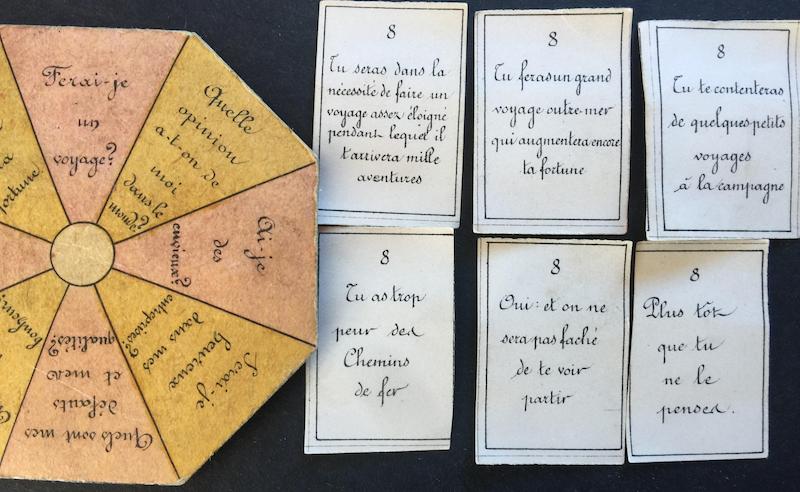 Ferai-je
un
voyage?
Quelle
opinion
a.t.on de
moi
dans le
monde?
Ai-je
des
envieux?
Serai-je
heureux
dans mes
entreprises?
Quels sont mes
défauts
et mes
qualités?
fortune
bonheur
8
Tu seras dans la
nécessité de faire un
voyage assez éloigné
pendant lequel il
t'arrivera mille
aventures
8
Tu feras un grand
voyage outre-mer
qui augmentera encore
ta fortune
8
Tu te contenteras
de quelques petits
voyages
à la campagne
8
Tu as trop
peur des
Chemins
de fer
8
Oui: et on ne
sera pas faché
de te voir
partir
8
Plus tôt
que tu
ne le
penses.